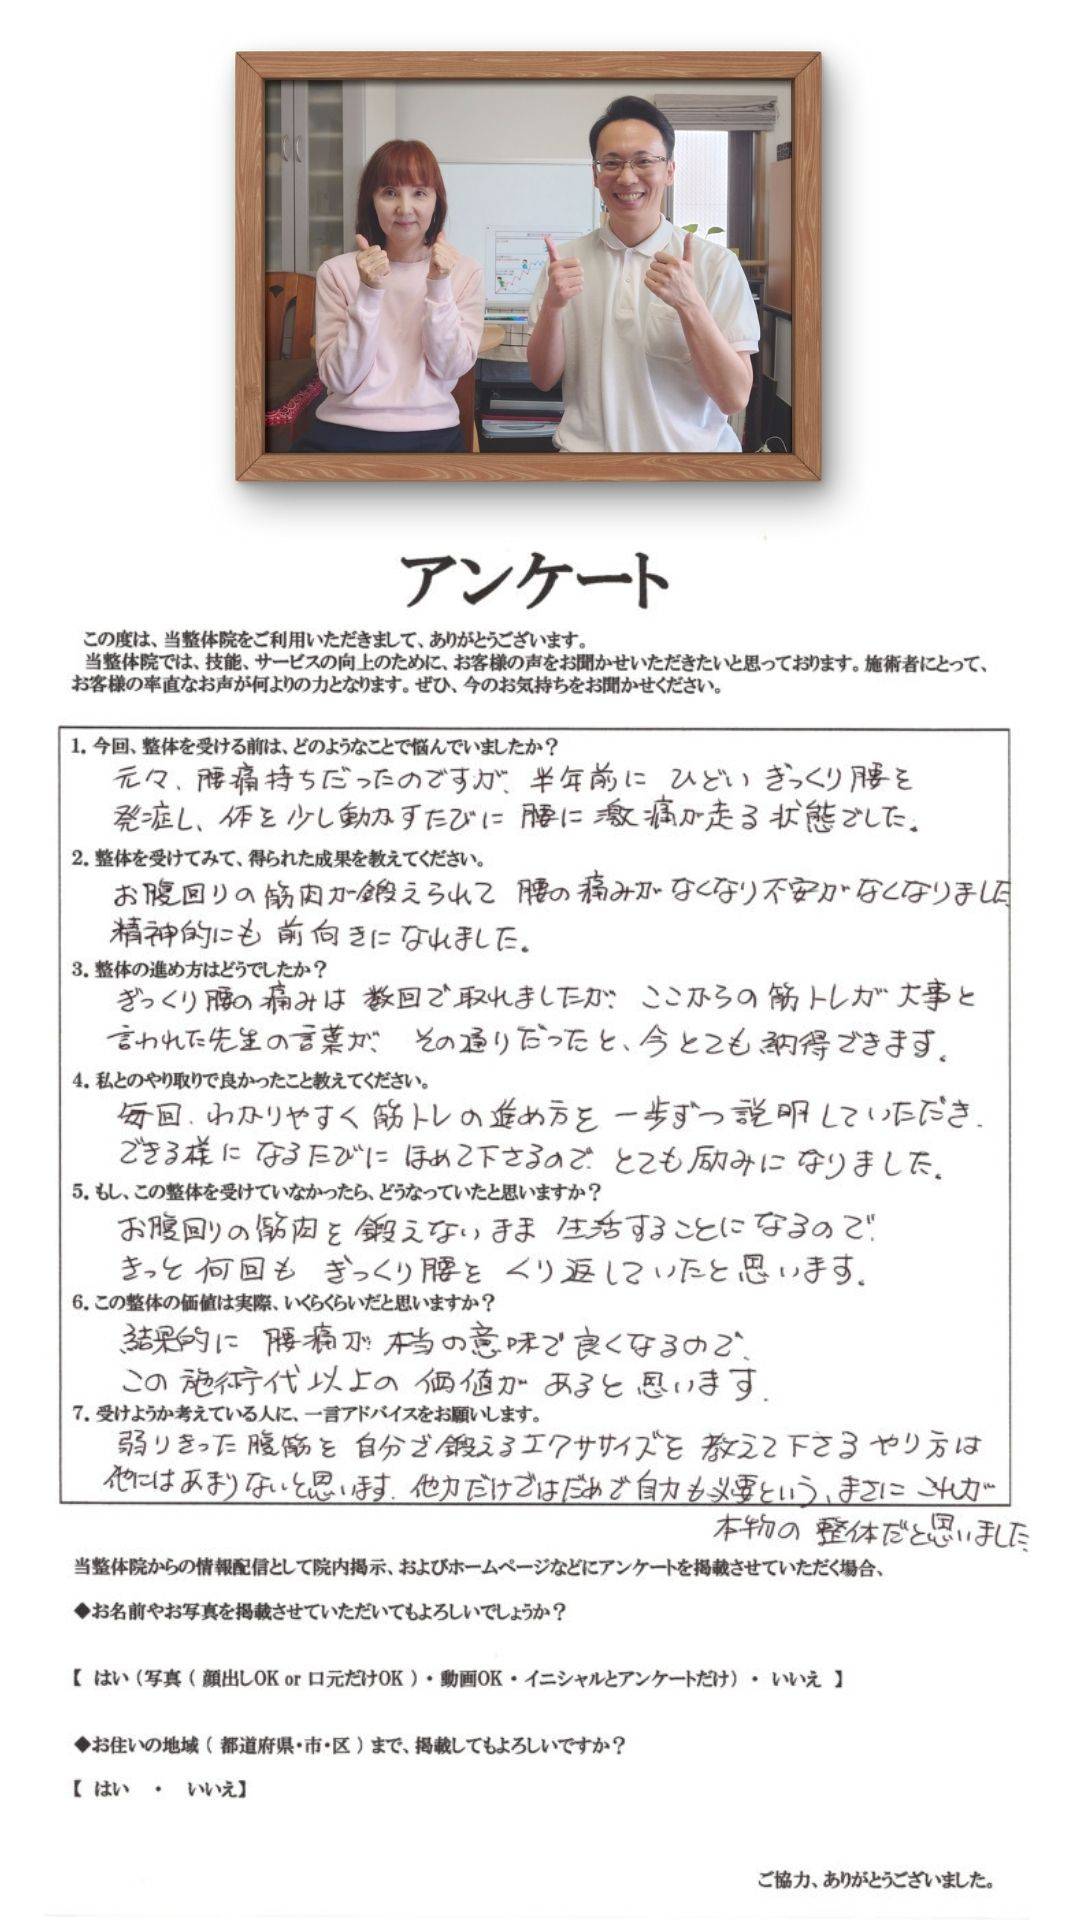 アンケート
この度は、当整体院をご利用いただきまして、ありがとうございます。
当整体院では、技能、サービスの向上のために、お客様の声をお聞かせいただきたいと思っております。施術者にとって、
お客様の率直なお声が何よりの力となります。ぜひ、今のお気持ちをお聞かせください。
1. 今回、整体を受ける前は、どのようなことで悩んでいましたか？
元々、腰痛持ちだったのですが、半年前に ひどい ぎっくり腰を
発症し、体を少し動かすたびに 腰に激痛が走る状態でした。
2. 整体を受けてみて、得られた成果を教えてください。
お腹回りの筋肉が鍛えられて 腰の痛みがなくなり不安がなくなりました
精神的にも前向きになれました。
3. 整体の進め方はどうでしたか？
ぎっくり腰の痛みは数回で取れましたが、ここからの筋トレが大事と
言われた先生の言葉が、その通りだったと、今とても納得できます。
4. 私とのやり取りで良かったこと教えてください。
毎回、わかりやすく筋トレの進め方を一歩ずつ説明していただき、
できる様になるたびにほめて下さるので、とても励みになりました。
5. もし、この整体を受けていなかったら、どうなっていたと思いますか？
お腹回りの筋肉を鍛えないまま生活することになるので、
きっと何回も ぎっくり腰を くり返していたと思います。
6. この整体の価値は実際、いくらくらいだと思いますか？
結果的に 腰痛が本当の意味で良くなるので、
この施術代以上の価値があると思います。
7. 受けようか考えている人に、一言アドバイスをお願いします。
弱りきった腹筋を自分で鍛えるエクササイズを教えて下さるやり方は
他にはあまりないと思います。他力だけではだめで自力も必要という、まさにこれが
本物の整体だと思いました
当整体院からの情報配信として院内掲示、およびホームページなどにアンケートを掲載させていただく場合、
◆お名前やお写真を掲載させていただいてもよろしいでしょうか？
【 はい（写真（ 顔出しOK or 口元だけOK ）・ 動画OK ・ イニシャルとアンケートだけ） ・ いいえ 】
◆お住いの地域（ 都道府県・市・区 ）まで、掲載してもよろしいですか？
【 はい ・ いいえ】
ご協力、ありがとうございました。